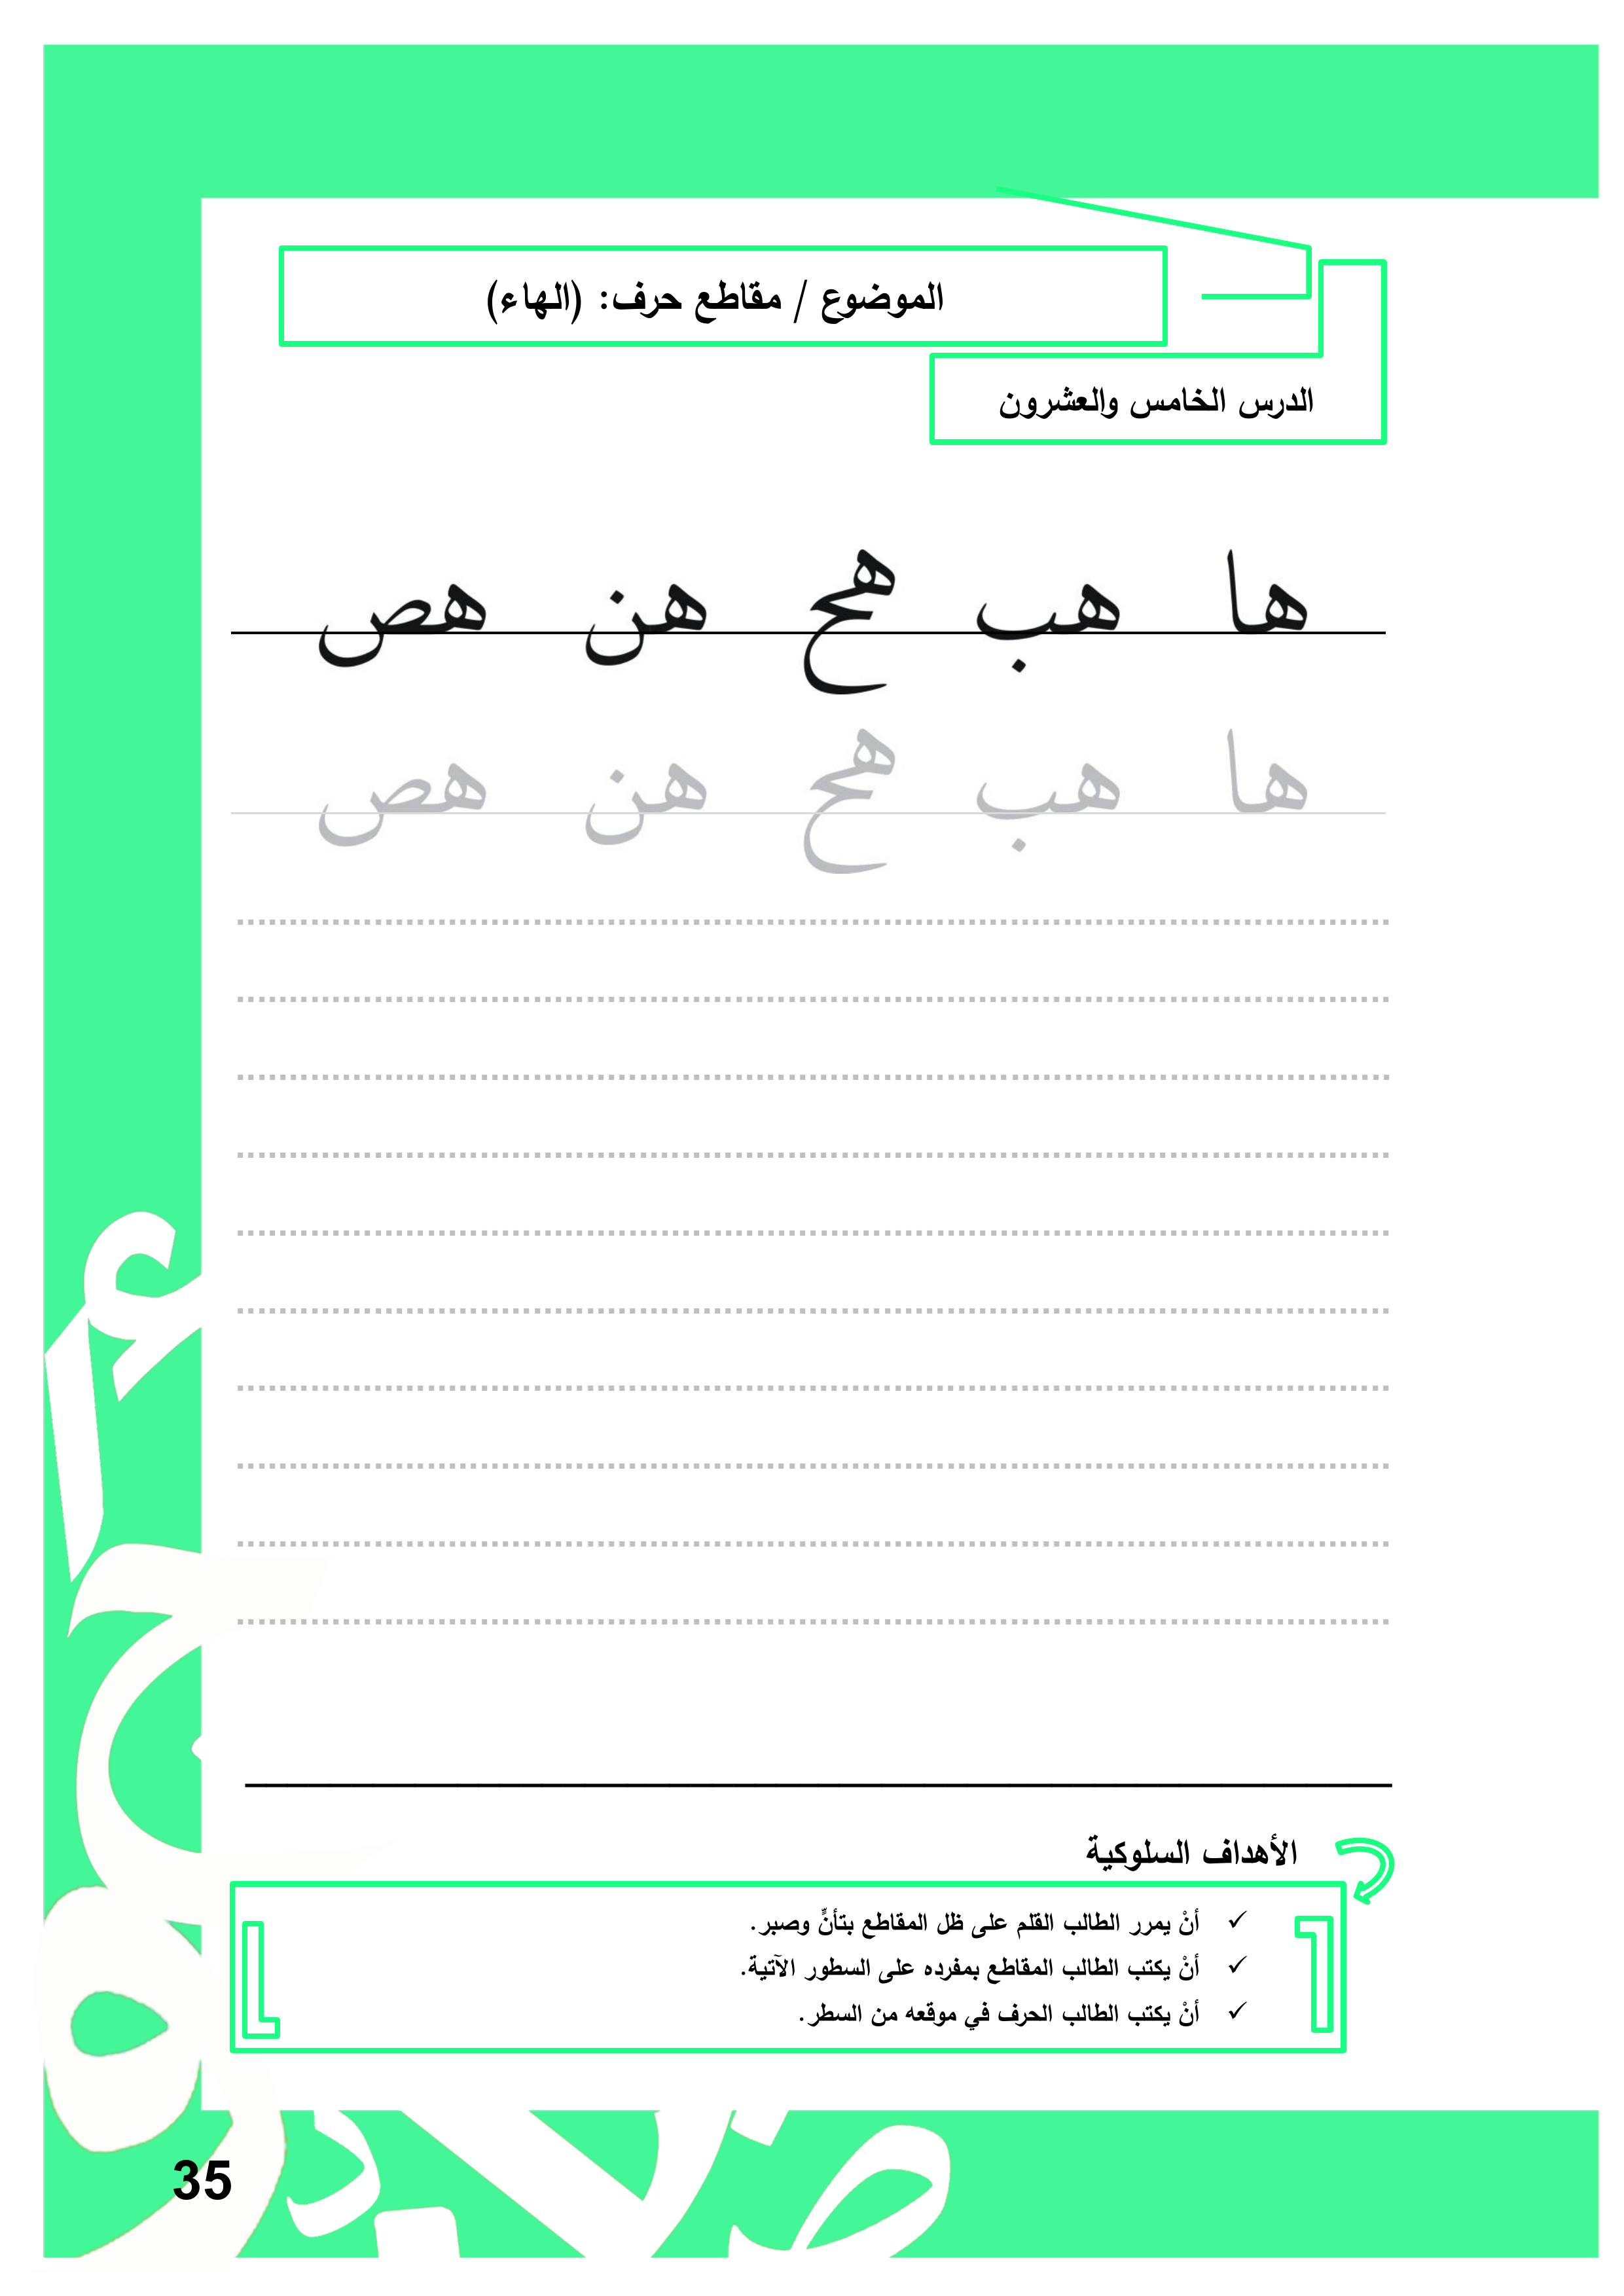 الموضوع / مقاطع حرف: (الهاء)
الدرس الخامس والعشرون
ها هب هح هن هص
ها هب هح هن هص
الأهداف السلوكية
✓ أنْ يمرر الطالب القلم على ظل المقاطع بتأنٍّ وصبر.
✓ أنْ يكتب الطالب المقاطع بمفرده على السطور الآتية.
✓ أنْ يكتب الطالب الحرف في موقعه من السطر.
35